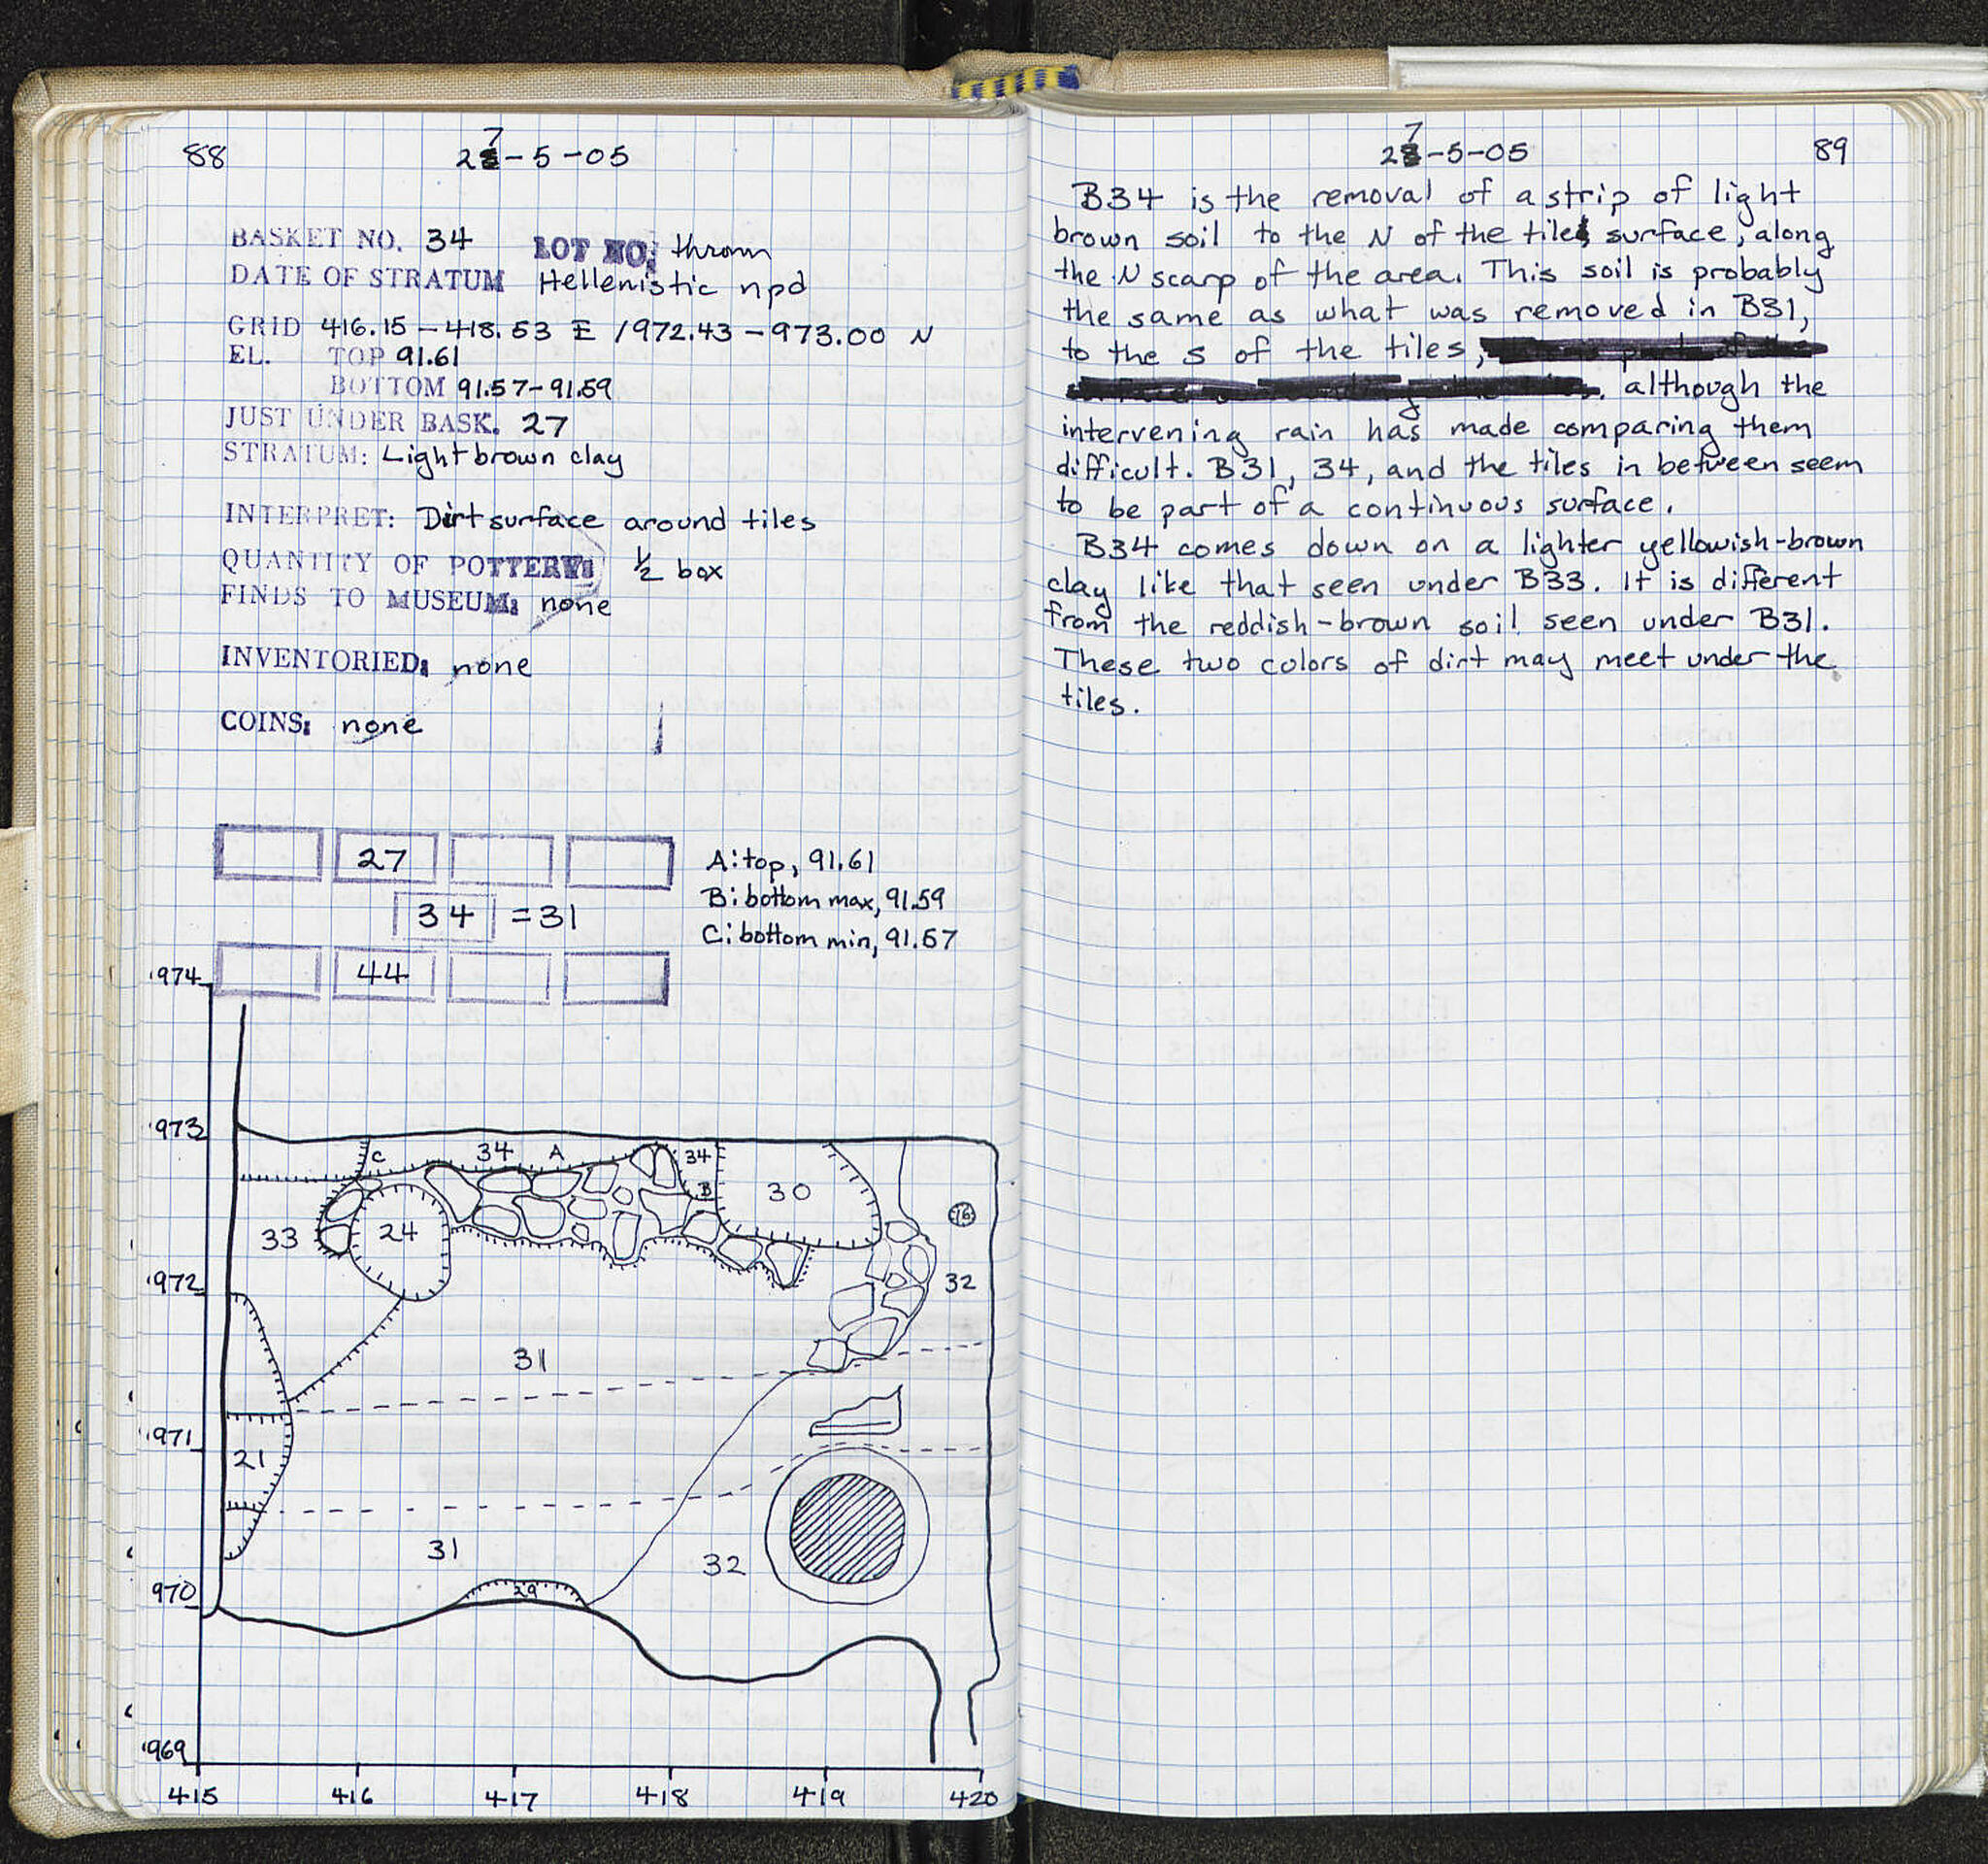 88
27-5-05
BASKET NO. 34 LOT NO: thrown
DATE OF STRATUM Hellenistic npd
GRID 416.15-418.53 E /972.43-973.00 N
EL. TOP 91.61
BOTTOM 91.57-91.59
JUST UNDER BASK. 27
STRATUM: Light brown clay
INTERPRET: Dirt surface around tiles
QUANTITY OF POTTERY: ½ box
FINDS TO MUSEUM: none
INVENTORIED: none
COINS: none
27
34 =31
44
A: top, 91.61
B: bottom max, 91.59
C: bottom min, 91.57
974
973
972
971
970
969
C 34 A 34
B 30
33 24
16
32
31
21
31
32
29
415 416 417 418 419 420
27-5-05
89
B34 is the removal of a strip of light
brown soil to the N of the tile surface, along
the N scarp of the area. This soil is probably
the same as what was removed in B31,
to the S of the tiles,
although the
intervening rain has made comparing them
difficult. B31, 34, and the tiles in between seem
to be part of a continuous surface.
B34 comes down on a lighter yellowish-brown
clay like that seen under B33. It is different
from the reddish-brown soil seen under B31.
These two colors of dirt may meet under the
tiles.